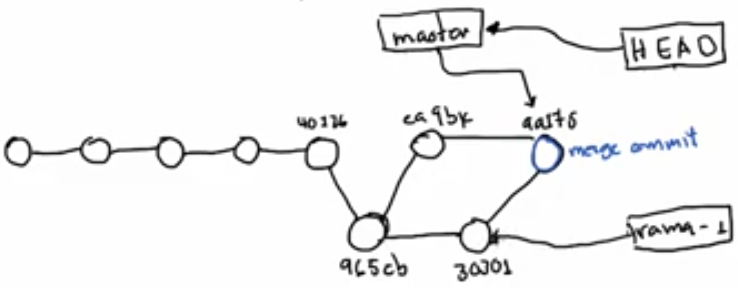 master
HEAD
40326
ca9bx
aa175
merge commit
965cb
30301
rama-1